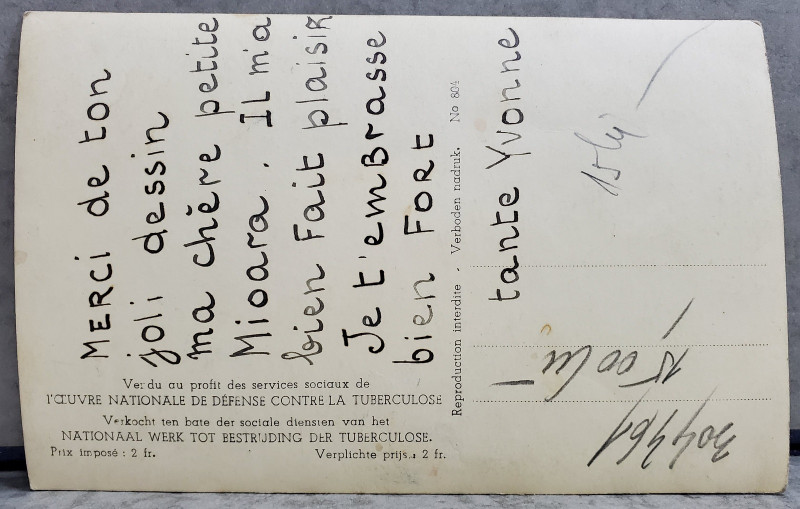 MERCI de ton
joli dessin
ma chère petite
Mioara. Il m'a
bien Fait plaisir
Je t'emBrasse
bien FORT
tante Yvonne
Vendu au profit des services sociaux de
l'ŒUVRE NATIONALE DE DÉFENSE CONTRE LA TUBERCULOSE
Verkocht ten bate der sociale diensten van het
NATIONAAL WERK TOT BESTRIJDING DER TUBERCULOSE.
Prix imposé : 2 fr. Verplichte prijs : 2 fr.
Reproduction interdite - Verboden nadruk. No 804
15 lei